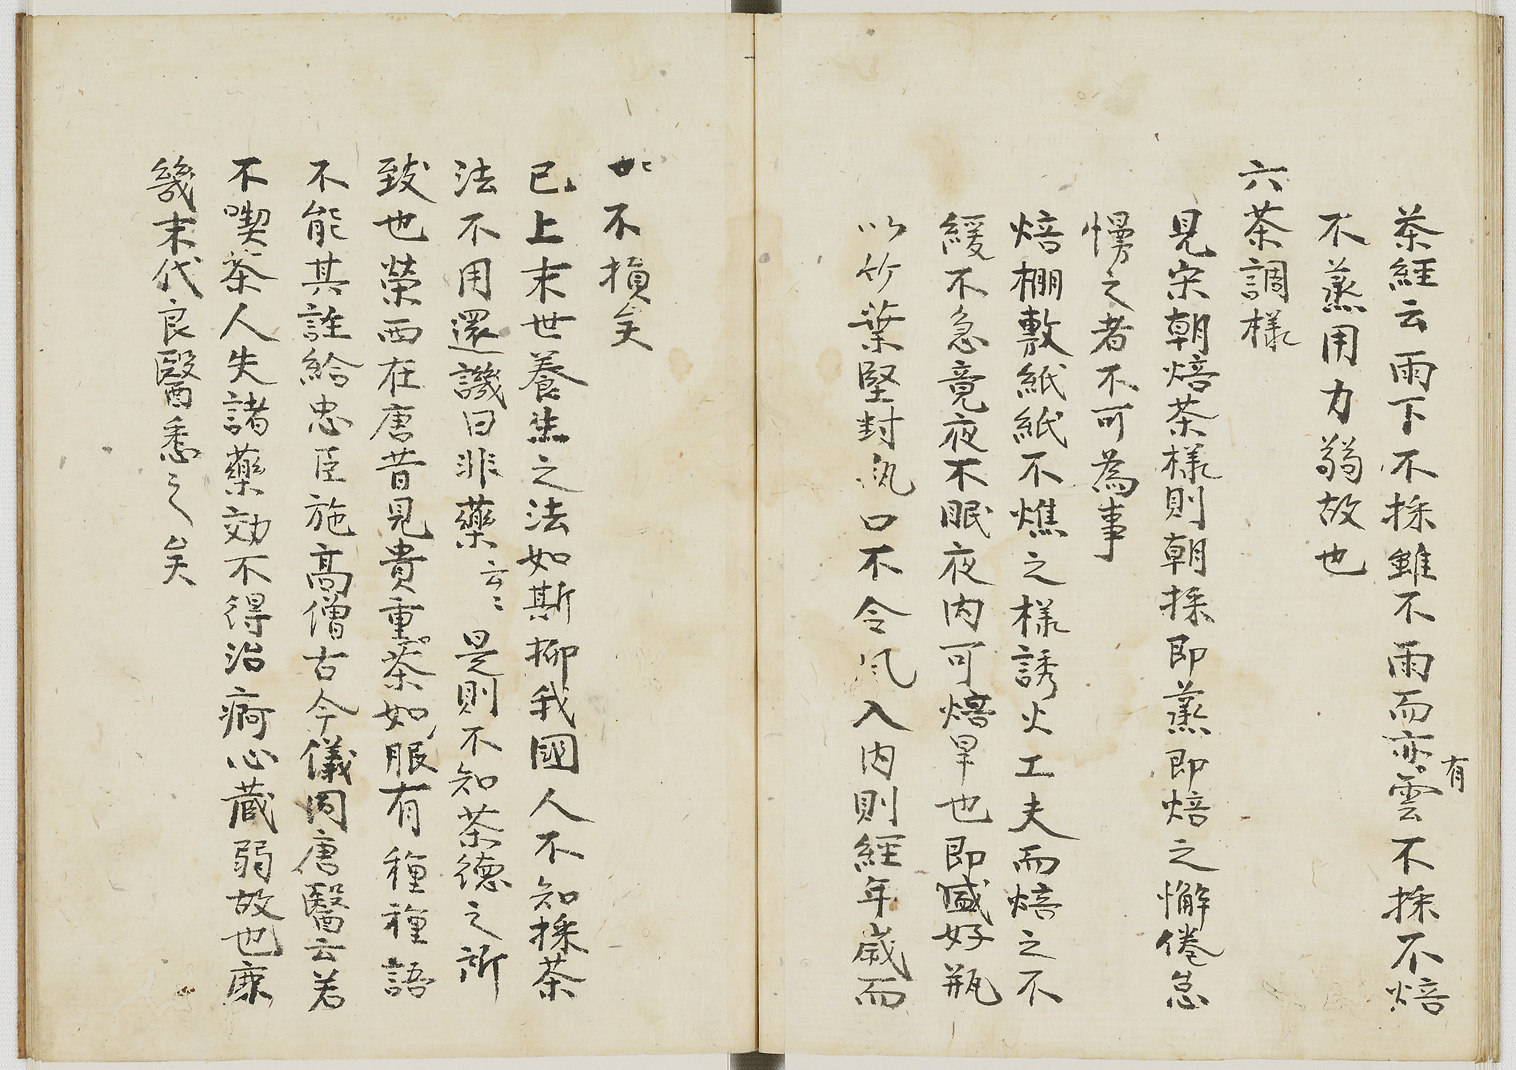 茶経云雨下不採雖不雨而亦有雲不採不焙
不蒸用力弱故也
六茶調様
見宋朝焙茶様則朝採即蒸即焙之懈倦怠
慢之者不可為事
焙棚敷紙紙不燋之様誘火工夫而焙之不
緩不急竟夜不眠夜内可焙早也即盛好瓶
以竹葉堅封瓶口不令風入内則経年歳而
不損矣
已上末世養生之法如斯抑我國人不知採茶
法不用還譏曰非薬云々是則不知茶徳之所
致也榮西在唐昔見貴重茶如眼有種種語
不能具註給忠臣施高僧古今儀同唐醫云若
不喫茶人失諸薬効不得治痾心蔵弱故也庶
幾末代良醫悉之矣